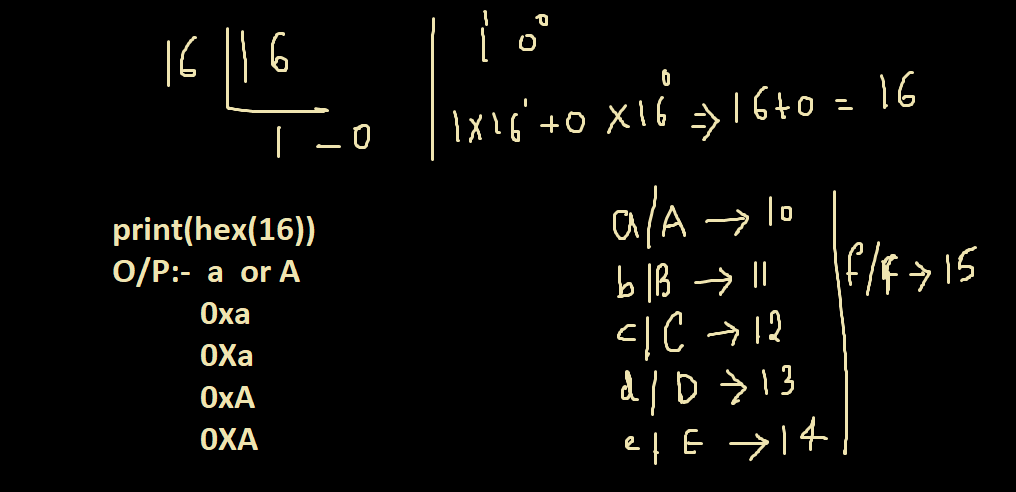 16 | 16
1 – 0
1¹ 0⁰
1×16¹ + 0 × 16⁰ ⇒ 16+0 = 16
print(hex(16))
O/P:- a or A
0xa
0Xa
0xA
0XA
a/A → 10
b|B → 11
c|C → 12
d|D → 13
e|E → 14
f/F → 15